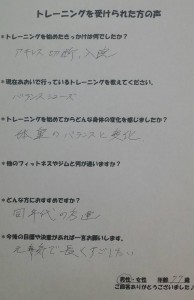 トレーニングを受けられた方の声
●トレーニングを始めたきっかけは何でしたか?
アキレス切断、入院
●現在あおいで行っているトレーニングを教えてください。
バランスシューズ
●トレーニングを始めてからどんな身体の変化を感じましたか?
体重のバランスと変化
●他のフィットネスやジムと何が違いますか?
●どんな方におすすめですか?
同年代の友達
●今後の目標や決意があれば一言お願いします。
元気で長くすごしたい
男性・女性 年齢 77 歳
ご回答ありがとうございました!